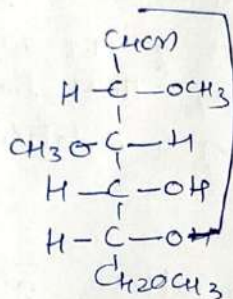 CHOH
H - C - OCH3
CH3O - C - H
H - C - OH
H - C - OH
CH2OCH3